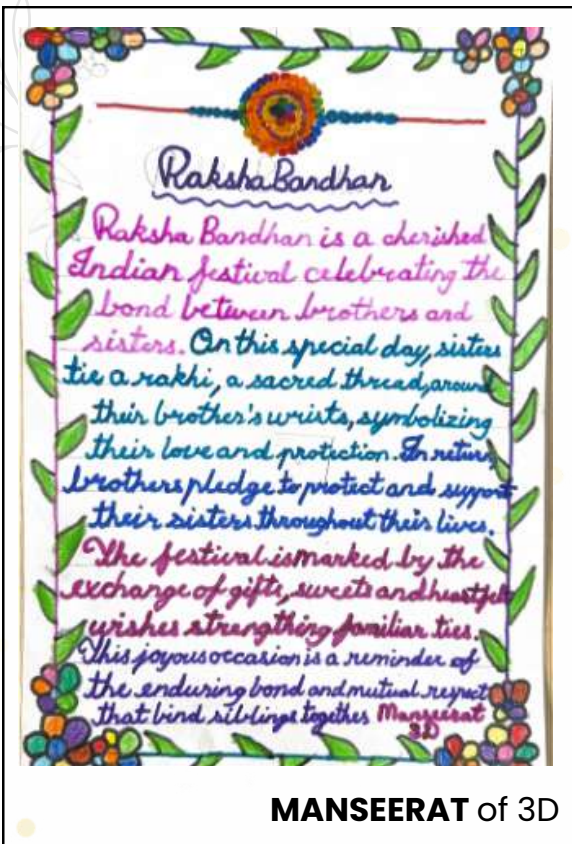 Raksha Bandhan
Raksha Bandhan is a cherished
Indian festival celebrating the
bond between brothers and
sisters. On this special day, sisters
tie a rakhi, a sacred thread, around
their brother's wrists, symbolizing
their love and protection. In return,
brothers pledge to protect and support
their sisters throughout their lives.
The festival is marked by the
exchange of gifts, sweets and heartfelt
wishes strengthing familiar ties.
This joyous occasion is a reminder of
the enduring bond and mutual respect
that bind siblings together Manseerat
3D
MANSEERAT of 3D